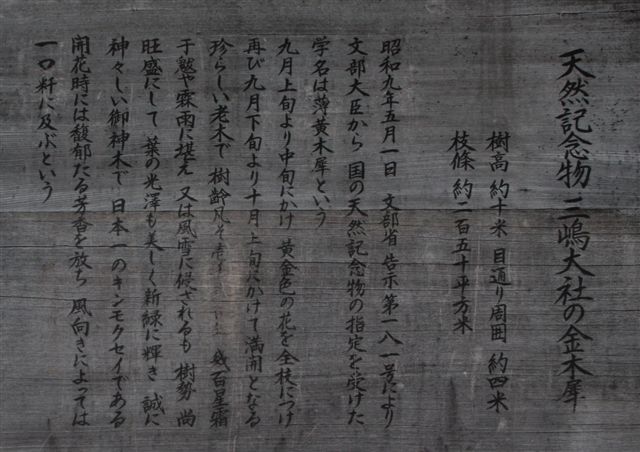 天然記念物 三嶋大社の金木犀
樹高 約十米 目通り周囲 約四米
枝條 約二百五十平方米
昭和九年五月一日 文部省告示第一八一号により
文部大臣から 国の天然記念物の指定を受けた
学名は薄黄木犀という
九月上旬より中旬にかけ 黄金色の花を全枝につけ
再び九月下旬より十月上旬にかけて満開となる
珍らしい老木で 樹齢凡そ 幾百星霜
干魃や霖雨に堪え 又は風雪に侵されるも 樹勢 尚
旺盛にして 葉の光澤も美しく新緑に輝き 誠に
神々しい御神木で 日本一のキンモクセイである
開花時には馥郁たる芳香を放ち 風向きによっては
一〇粁に及ぶという